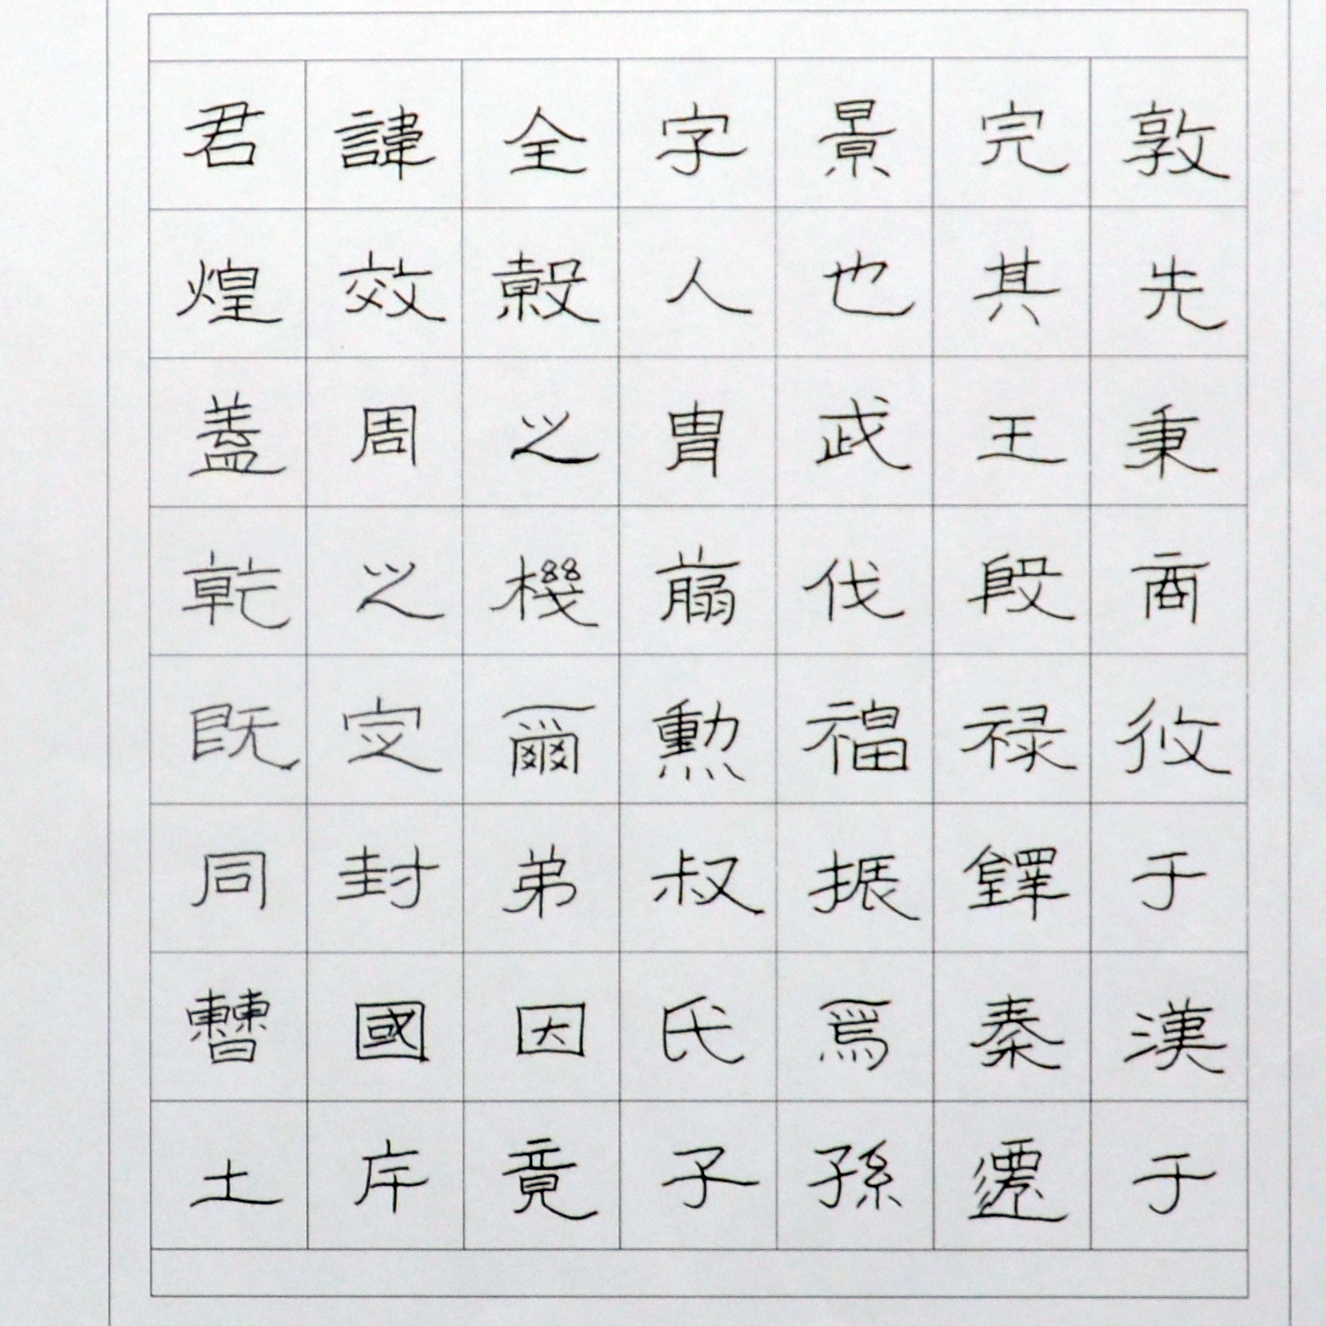 君諱全字景完敦
煌效穀人也其先
蓋周之胄武王秉
乾之機翦伐殷商
既定爾勳福禄攸
同封弟叔振鐸于
曹國因氏焉秦漢
土斥竟子孫遷于